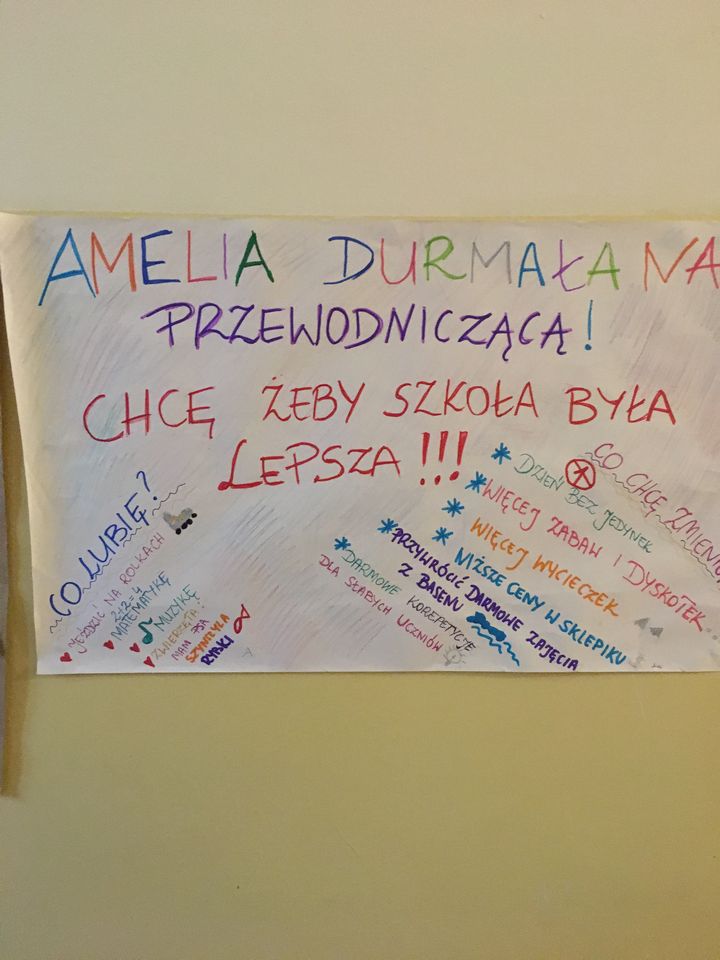 AMELIA DURMAŁA NA
PRZEWODNICZĄCĄ!
CHCĘ ŻEBY SZKOŁA BYŁA
LEPSZA!!!
CO LUBIĘ?
JEŹDZIĆ NA ROLKACH
2+2=4
MATEMATYKĘ
MUZYKĘ
ZWIERZĘTA!
MAM PSA
SZYNSZYLA
RYBKI
CO CHCĘ ZMIENIĆ
DZIEŃ BEZ JEDYNEK
WIĘCEJ ZABAW I DYSKOTEK
WIĘCEJ WYCIECZEK
NIŻSZE CENY W SKLEPIKU
PRZYWRÓCIĆ DARMOWE ZAJĘCIA
Z BASENU
DARMOWE KOREPETYCJE
DLA SŁABYCH UCZNIÓW